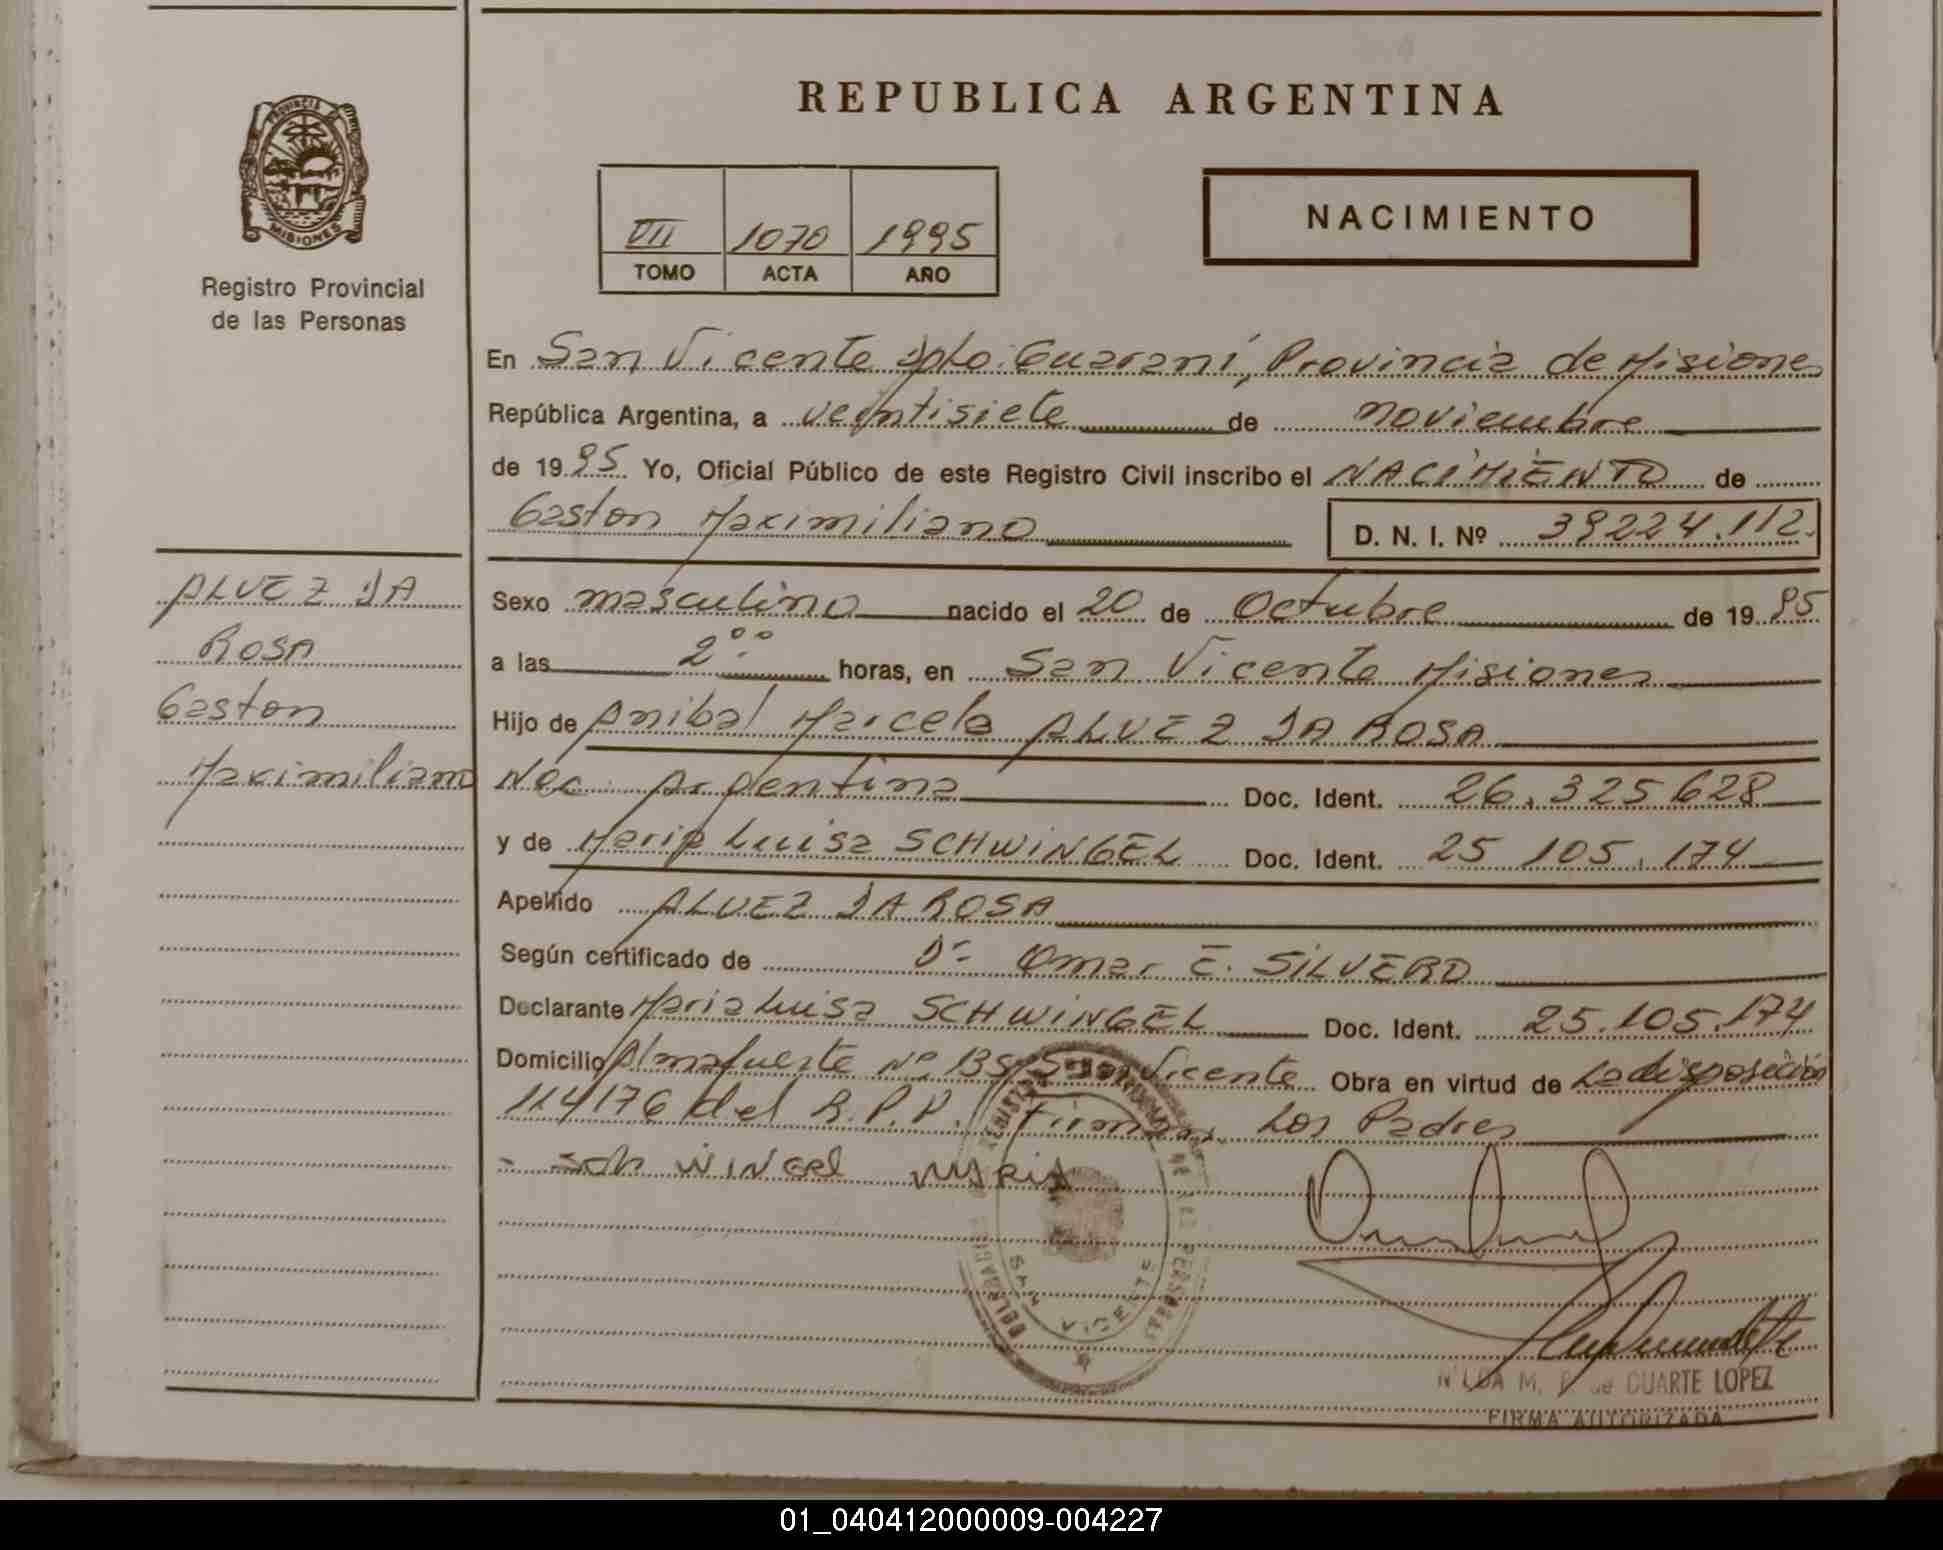 REPUBLICA ARGENTINA
PROVINCIA DE
MISIONES
Registro Provincial
de las Personas
VII 1070 1995
TOMO ACTA AÑO
NACIMIENTO
En San Vicente Dpto. Guaraní, Provincia de Misiones
República Argentina, a veintisiete de noviembre
de 1995 Yo, Oficial Público de este Registro Civil inscribo el NACIMIENTO de
Gaston Maximiliano D. N. I. Nº 39224.112.
ALVEZ DA
ROSA
Gaston
Maximiliano
Sexo masculino nacido el 20 de Octubre de 1995
a las 2°° horas, en San Vicente Misiones
Hijo de Anibal Marcelo ALVEZ DA ROSA
Nac. Argentina Doc. Ident. 26.325628
y de Maria Luisa SCHWINGEL Doc. Ident. 25 105.174
Apellido ALVEZ DA ROSA
Según certificado de Dr Omar E. SILVERO
Declarante Maria Luisa SCHWINGEL Doc. Ident. 25.105.174
Domicilio Almafuerte Nº 135 San Vicente Obra en virtud de La disposición
114176 del R.P.P. Firman Los Padres
- SCHWINGEL MARIA
SAN VICENTE
DE LAS PERSONAS
M. DUARTE LOPEZ
FIRMA AUTORIZADA
01_040412000009-004227